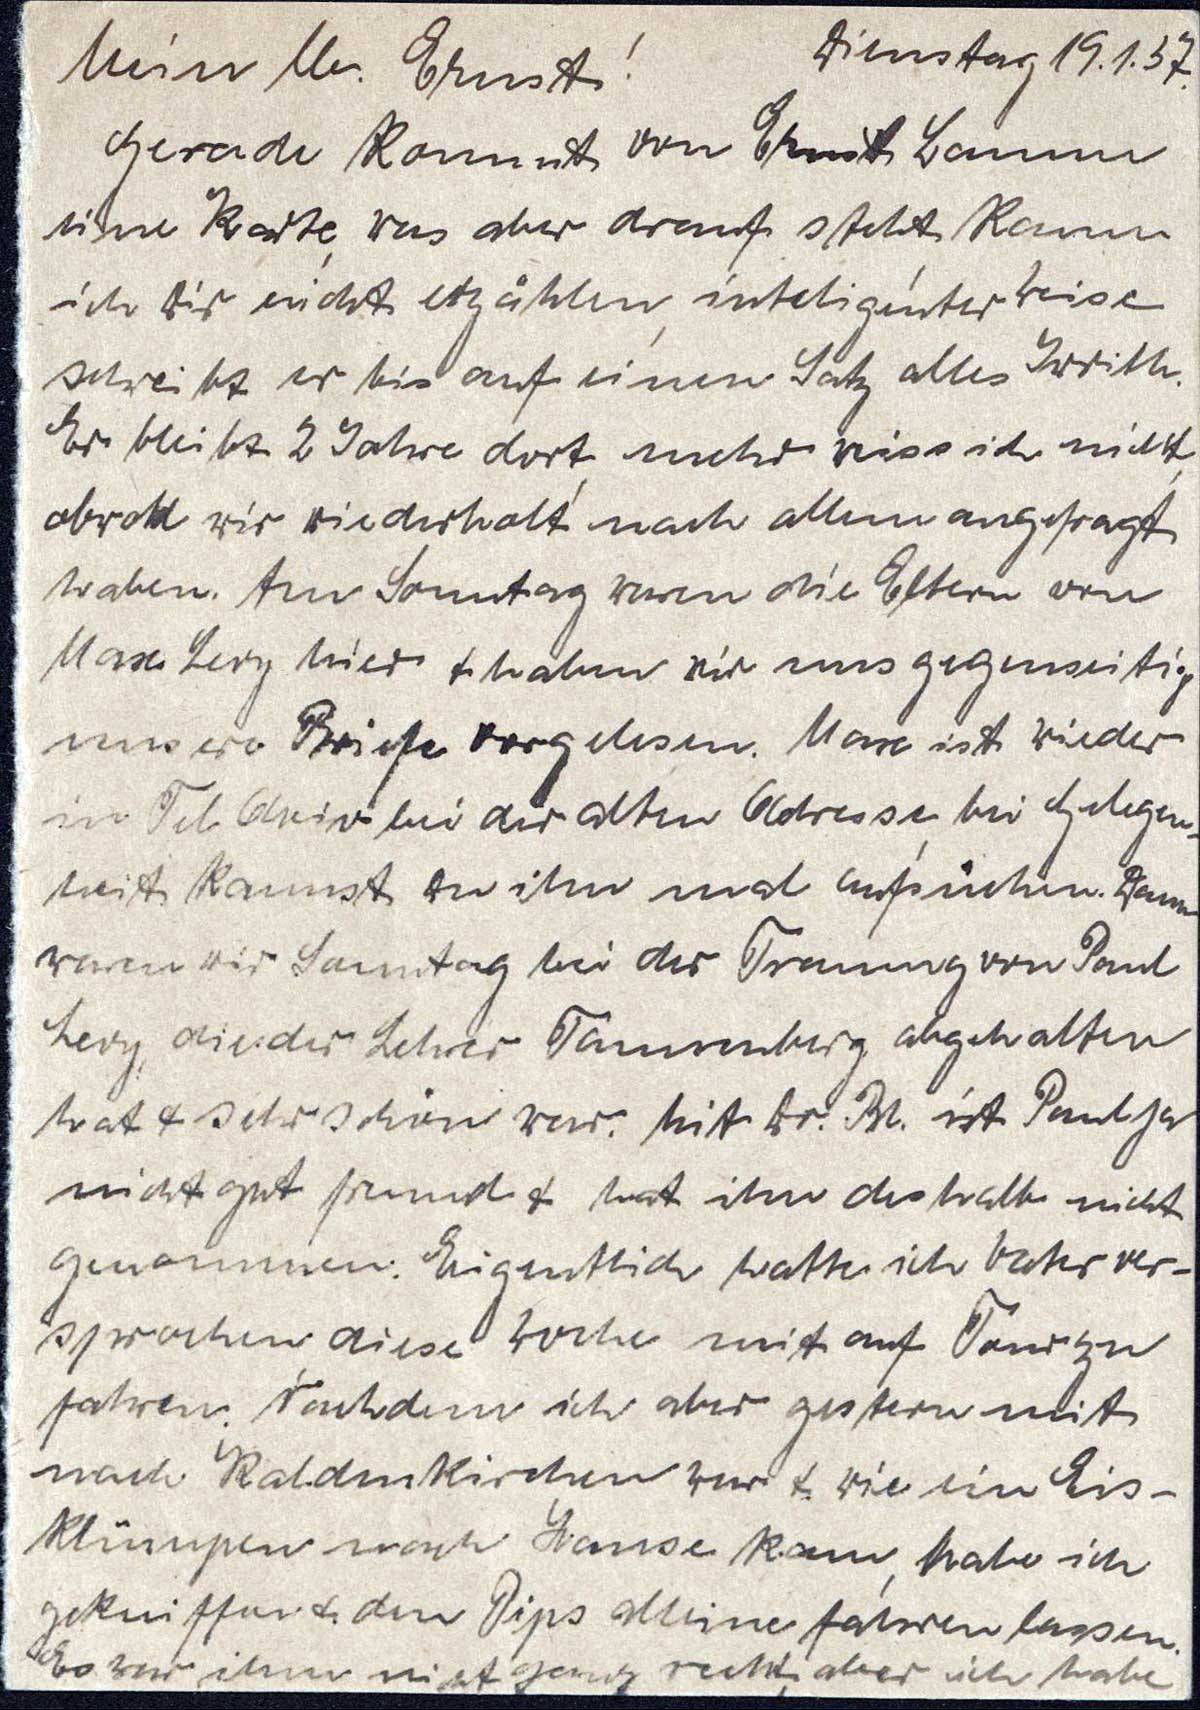 Mein lb. Ernst! Dienstag 19.1.37.
Gerade kommt von Ernst Lamm
eine Karte, was aber drauf steht kann
ich Dir nicht erzählen, inteligenter Weise
schreibt er bis auf einen Satz alles Iwrith.
Er bleibt 2 Jahre dort, mehr weiss ich nicht,
obwohl wir wiederholt nach allem angefragt
haben. Am Sonntag waren die Eltern von
Max Levy hier & haben wir uns gegenseitig
unsere Briefe vorgelesen. Max ist wieder
in Tel Aviv bei der alten Adresse, bei Gelegen-
heit kannst Du ihn mal aufsuchen. Dann
waren wir Sonntag bei der Trauung von Paul
Levy, die der Lehrer Tannenberg abgehalten
hat & sehr schön war. Mit Dr. Bl. ist Paul ja
nicht gut freund & hat ihn deshalb nicht
genommen. Eigentlich hatte ich Vater ver-
sprochen diese Woche mit auf Tour zu
fahren. Nachdem ich aber gestern mit
nach Kaldenkirchen war & wie ein Eis-
klümpen nach Hause kam, habe ich
gekniffen & den Pips alleine fahren lassen.
Es war ihm nicht ganz recht, aber ich habe